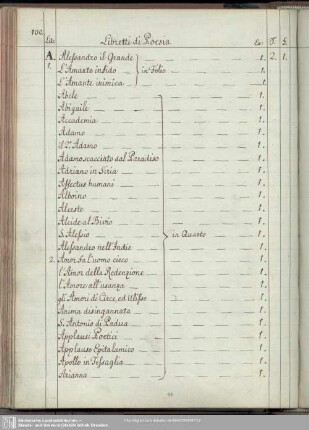 100.
Libretti di Poesia
A. Alessandro il Grande 1. 2. 1.
1. L'Amante infido in Folio 1.
L'Amante inimica 1.
Abele 1.
Abigaile 1.
Accademia 1.
Adamo 1.
il 2.º Adamo 1.
Adamo scacciato dal Paradiso 1.
Adriano in Siria 1.
Affectus humani 1.
Alboino 1.
Alceste 1.
Alcide al Bivio 1.
S. Alessio in Quarto 1.
Alessandro nell'Indie 1.
2. Amor fa l'uomo cieco 1.
l'Amor della Redenzione 1.
l'Amore all'usanza 1.
gli Amori di Circe, ed Ulisse 1.
Anima disingannata 1.
S. Antonio di Padua 1.
Applausi Poetici 1.
Applauso Epitalamico 1.
Apollo in Tessaglia 1.
Arianna 1.